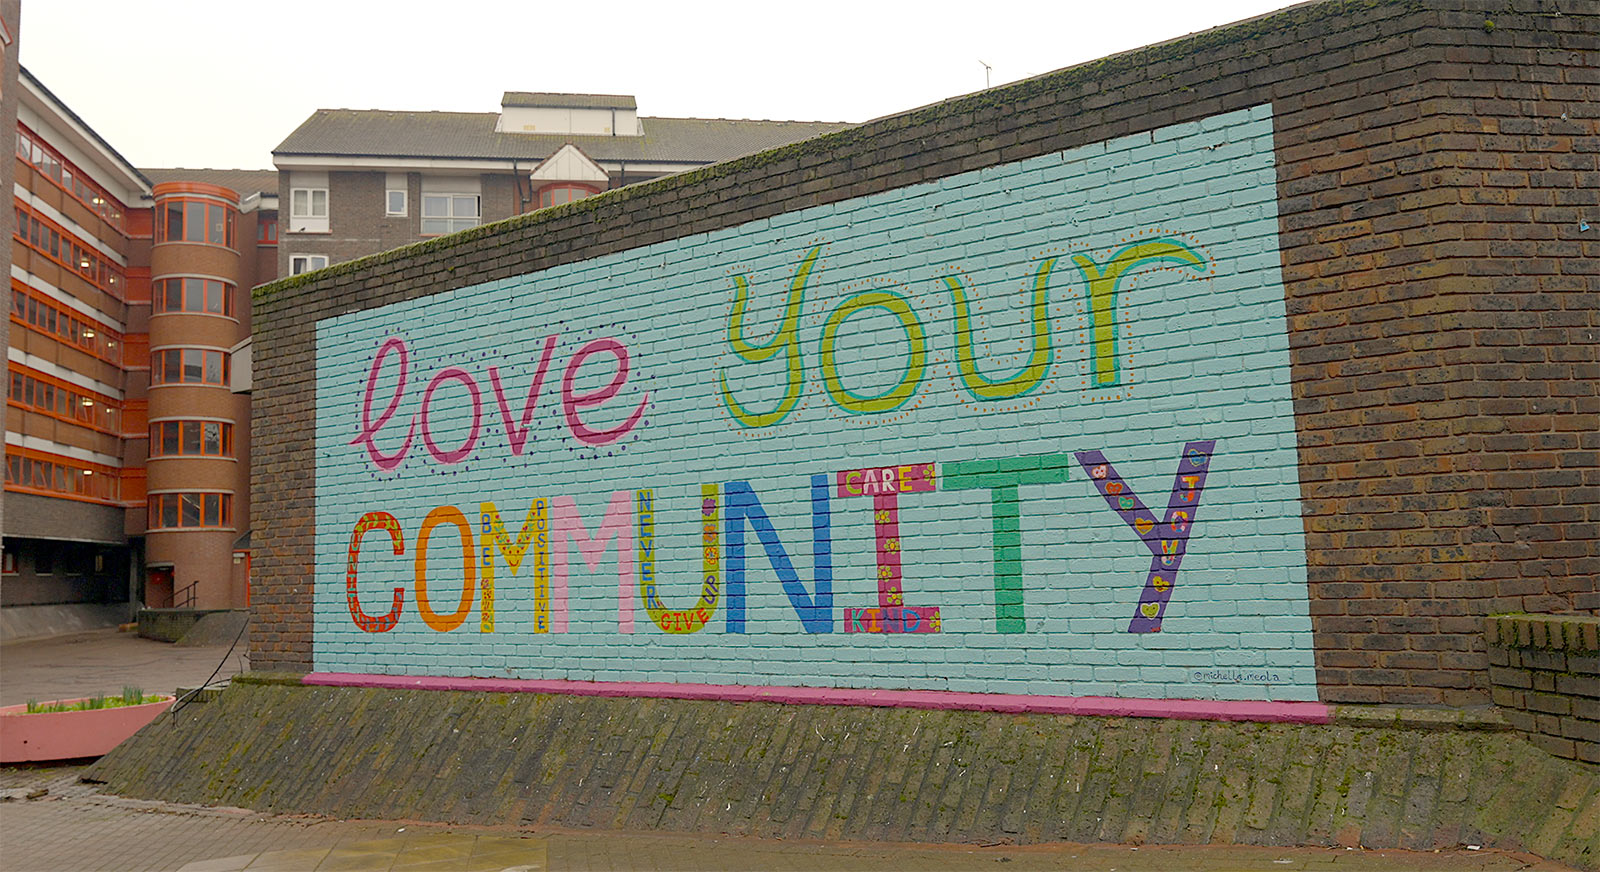 love your
COMMUNITY
BE
POSITIVE
NEVER
GIVE UP
CARE
KIND
@michelle.meola